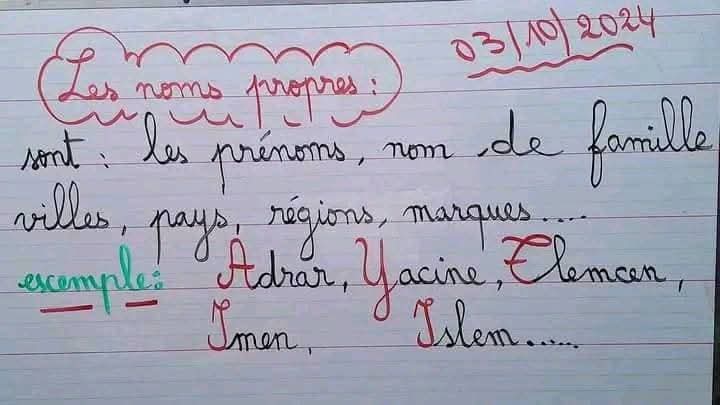 03/10/2024
Les noms propres :
sont : les prénoms, nom de famille
villes, pays, régions, marques.....
escemple: Adrar, Yacine, Tlemcen,
Imen, Islem......